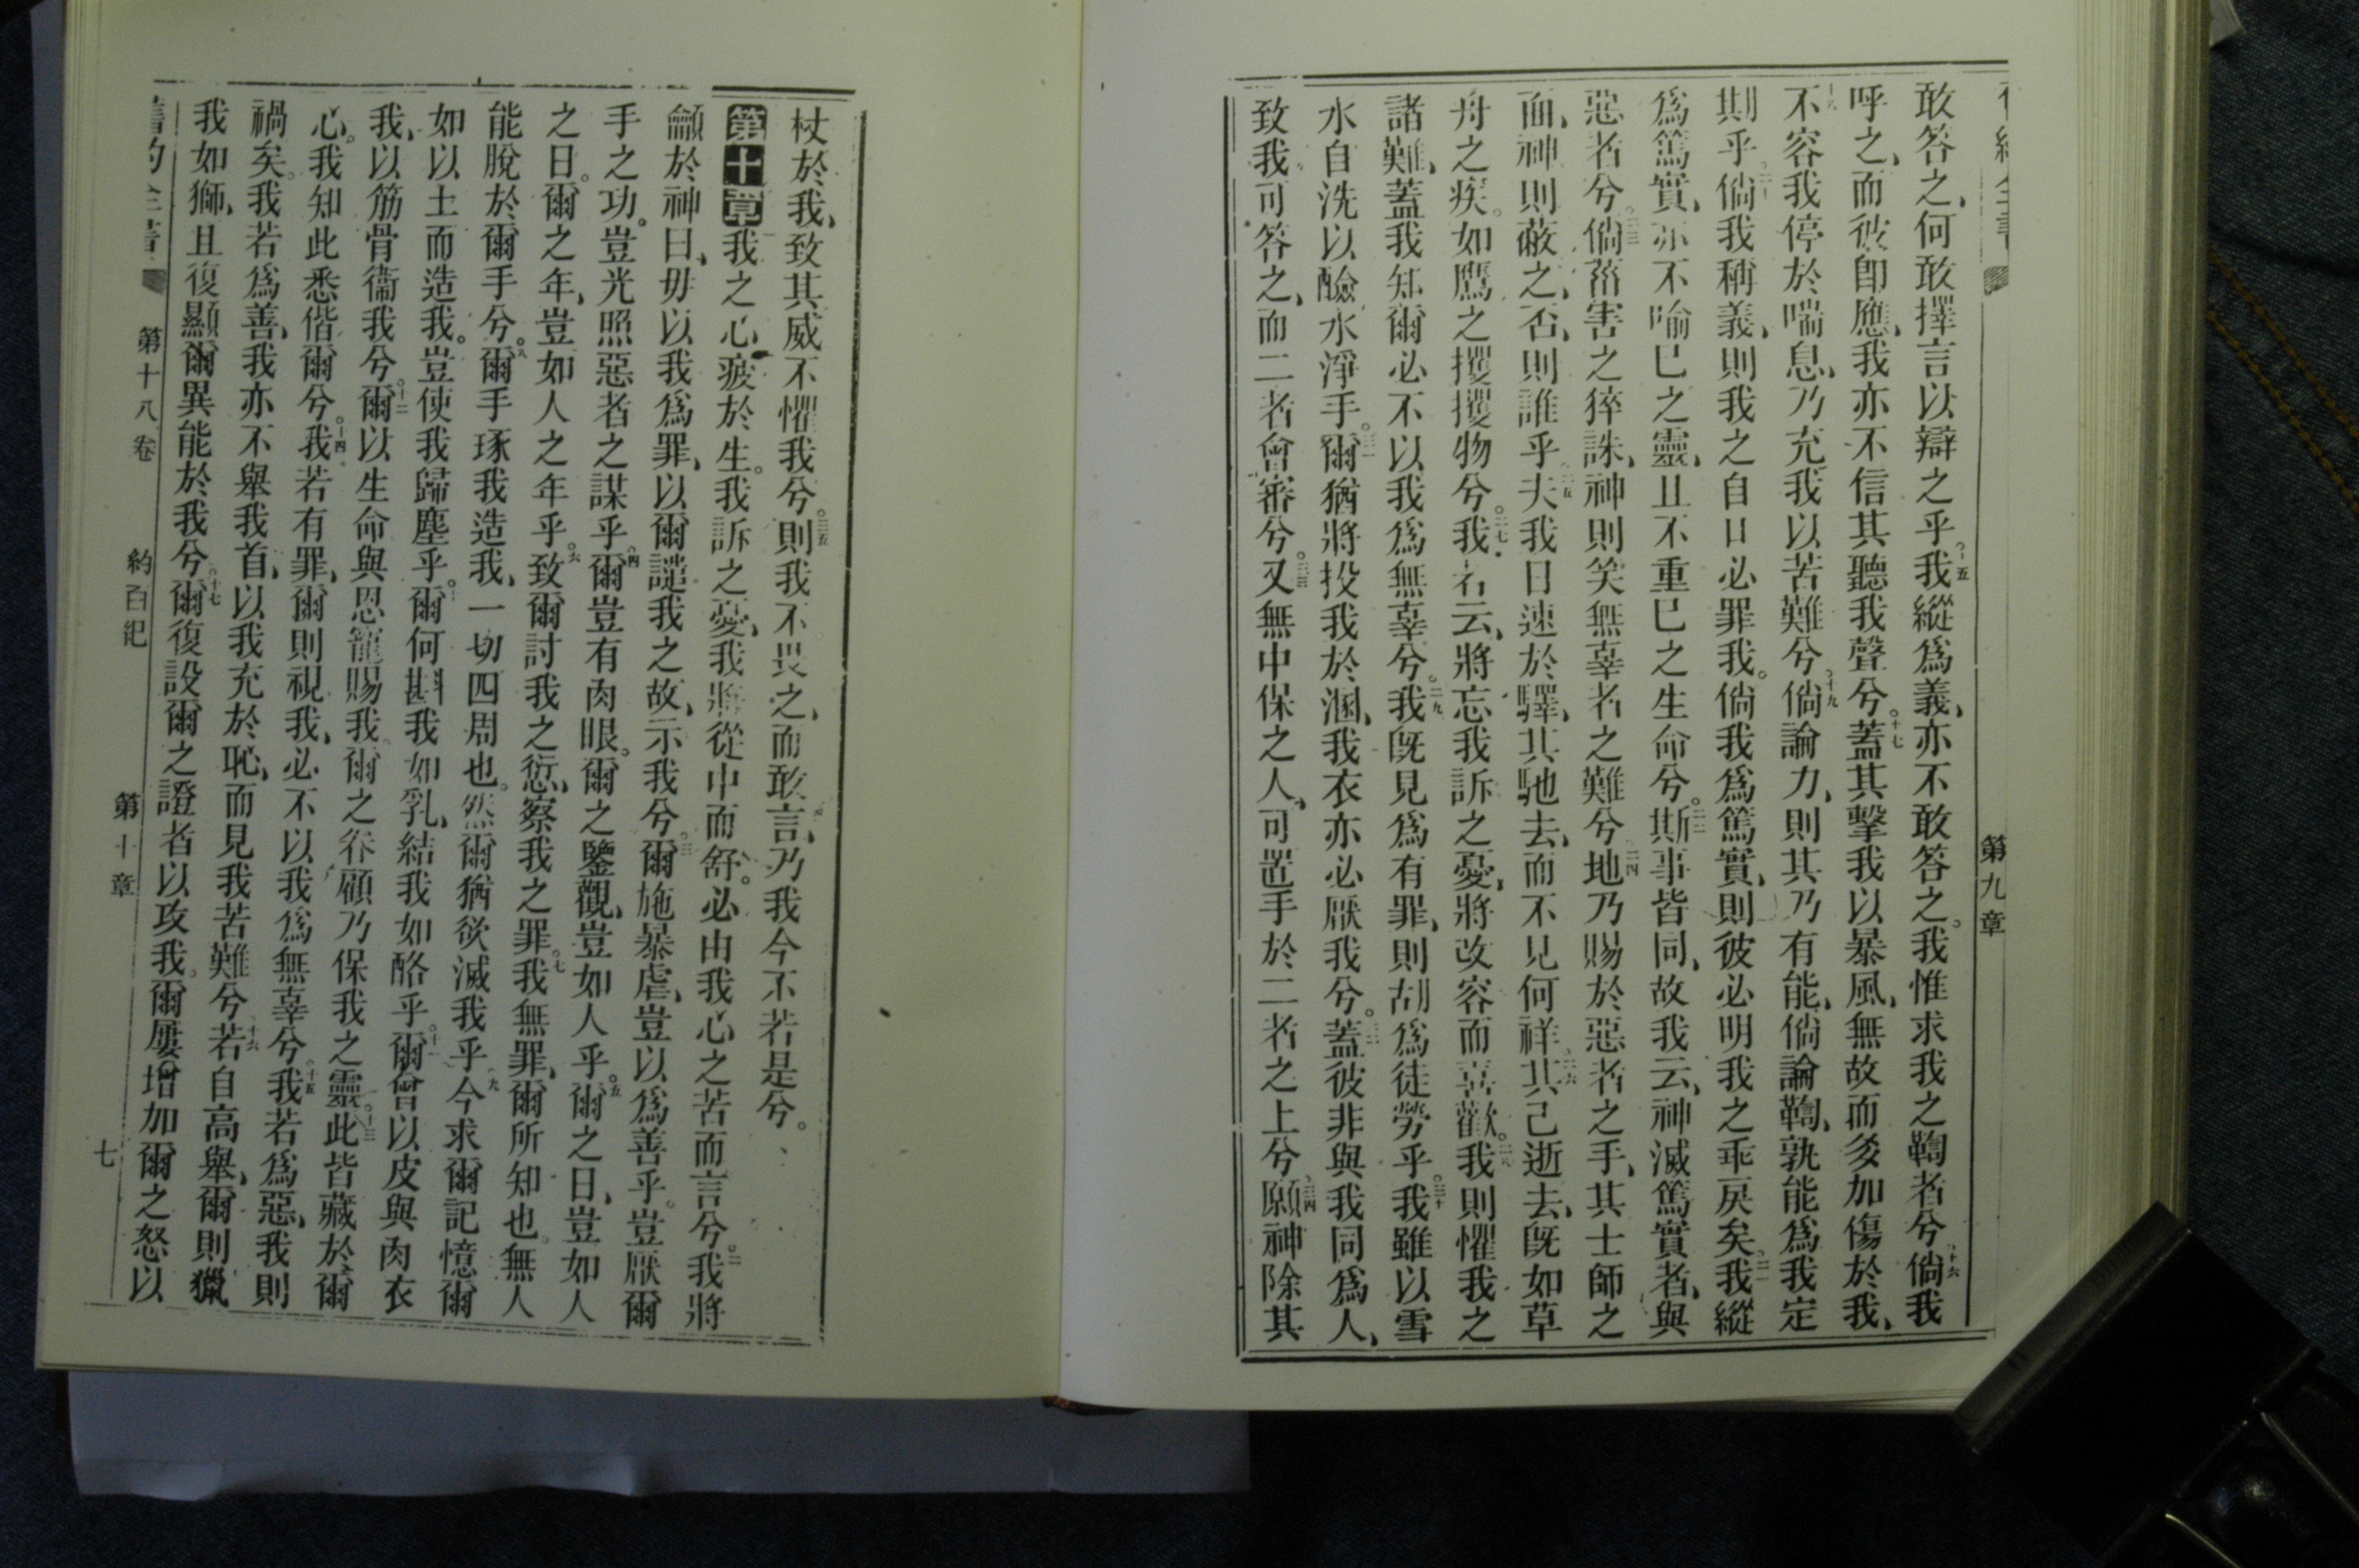 第九章
敢答之、何敢擇言以辯之乎。十五我縱爲義、亦不敢答之。我惟求我之鞫者兮。十六倘我
呼之、而彼卽應、我亦不信其聽我聲兮。十七蓋其擊我以暴風、無故而多加傷於我、
十八不容我停於喘息、乃充我以苦難兮。十九倘論力、則其乃有能、倘論鞫、孰能爲我定
期乎。二十倘我稱義、則我之自口必罪我。倘我爲篤實、則彼必明我之乖戾矣。二一我縱
爲篤實、亦不喻己之靈、且不重己之生命兮。二二斯事皆同、故我云、神滅篤實者、與
惡者兮。二三倘菑害之猝誅、神則笑無辜者之難兮。二四地乃賜於惡者之手、其士師之
面、神則蔽之、否則誰乎。二五夫我日速於驛、其馳去、而不見何祥。二六其已逝去、旣如草
舟之疾。如鷹之攫攫物兮。二七我若云、將忘我訴之憂、將改容而喜歡。二八我則懼我之
諸難、蓋我知爾必不以我爲無辜兮。二九我旣見爲有罪、則胡爲徒勞乎。三十我雖以雪
水自洗以鹼水淨手。三一爾猶將投我於溷、我衣亦必厭我兮。三二蓋彼非與我同爲人、
致我可答之、而二者會審兮。三三又無中保之人、可置手於二者之上兮。三四願神除其
杖於我、致其威不懼我兮。三五則我不畏之、而敢言、乃我今不若是兮。
第十章我之心疲於生。我訴之憂、我將從中而舒。必由我心之苦而言兮。二我將
籲於神曰、毋以我爲罪、以爾譴我之故、示我兮。三爾施暴虐、豈以爲善乎。豈厭爾
手之功。豈光照惡者之謀乎。四爾豈有肉眼。爾之鑒觀、豈如人乎。五爾之日、豈如人
之日。爾之年、豈如人之年乎。六致爾討我之愆、察我之罪。七我無罪、爾所知也。無人
能脫於爾手兮。八爾手琢我造我、一切四周也。然爾猶欲滅我乎。九今求爾記憶爾
如以土而造我。豈使我歸塵乎。十爾何斟我如乳、結我如酪乎。十一爾曾以皮與肉衣
我、以筋骨備我兮。十二爾以生命與恩寵賜我。爾之眷顧乃保我之靈。十三此皆藏於爾
心。我知此悉偕爾兮。十四我若有罪、爾則視我、必不以我爲無辜兮。十五我若爲惡、我則
禍矣。我若爲善、我亦不舉我首、以我充於恥、而見我苦難兮。十六若自高舉、爾則獵
我如獅、且復顯爾異能於我兮。十七爾復設爾之證者以攻我。爾屢增加爾之怒以
舊約全書 第十八卷 約百紀 第十章 七